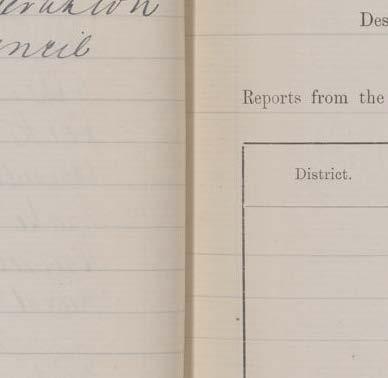 ncil
Des
Reports from the
District.